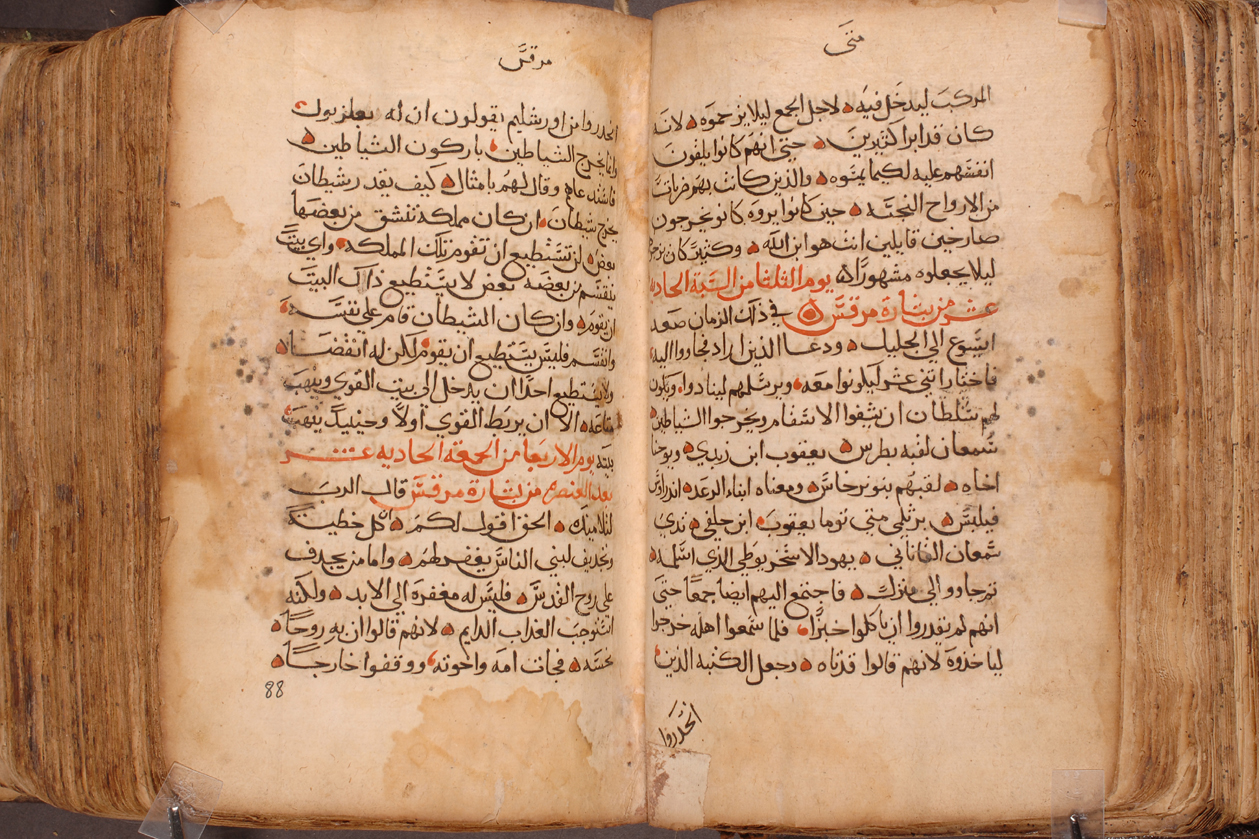 متى
المركب ليدخل فيه لاجل الجمع ليلا يزحموه لانه
كان قد ابرا كثيرين حتى انهم كانوا يلقون
انفسهم عليه لكيما يمسوه والذين كانت بهم ضربات
من الارواح النجسه حين كانوا يروه كانو يخرجون
صارخين قايلين انت هو ابن الله وكثيرا كان يزجرهم
ليلا يجعلوه مشهورا يوم الثلثا من السبة الحاديه
عشر من بشارة مرقس في ذلك الزمان صعد
ايسوع الى الجليل ودعا الذين اراد فجاووا اليه
فاختار اثني عشر ليكونوا معه ويرسلهم لينادوا ويكون
لهم سلطان ان يشفوا الاسقام ويخرجوا الشياطين
سمعان لقبه بطرس يعقوب ابن زبدي ويوحنا
اخاه لقبهم بنو نرجاس ومعناه ابناء الرعد اندراوس
فيلبس برثلمي متى توما يعقوب ابن حلفي تدي
سمعان القاناني يهودا الاسخريوطي الذي اسلمه
ثم جاووا الى منزل فاجتمع اليهم ايضا جمعا حتى
انهم لم يقدروا ان ياكلوا خبزا فلما سمعوا اهله خرجوا
لياخذوه لانهم قالوا قد تاه وجعل الكتبه الذين
انحدروا
مرقس
انحدروا من اورشليم يقولون ان له بعلزبول
وانما يخرج الشياطين باركون الشياطين
فاستدعاهم وقال لهم بامثال كيف يقدر شيطان
يخرج شيطان ان كان مملكة تنشق من بعضها
بعض لن تستطيع ان تقوم تلك المملكه واي بيت
ينقسم من بعضه بعض لا يستطيع ذاك البيت
ان يقوم وان كان الشيطان قام على نفسه
وانقسم فليس يستطيع ان يقوم لكن له انقضا
ولا يستطيع احدا ان يدخل الى بيت القوي وينهب
متاعه الا ان يربط القوي اولا وحينيذ ينهب
بيته يوم الاربعا من الجمعه الحاديه عشر
بعد العنصره من بشارة مرقس قال الرب
لتلاميذه الحق اقول لكم كل خطيه
وتجديف لبني الناس يغفر لهم واما من يجدف
على روح القدس فليس له مغفره الى الابد ولكنه
استوجب العذاب الدايم لانهم قالوا ان به روحا
نجسه فجات امه واخوته ووقفوا خارجا
88